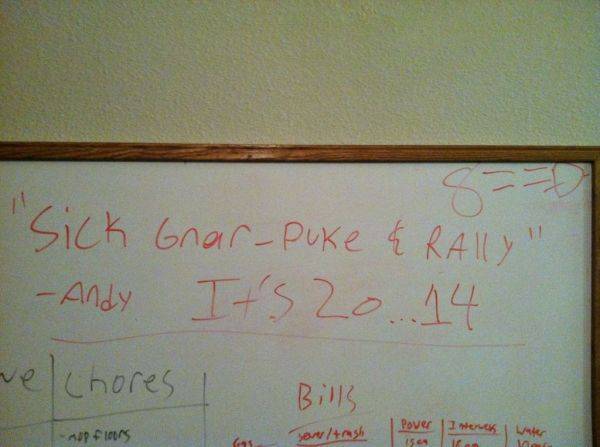 8==D
"Sick Gnar-Puke & RAlly"
-Andy It's 20...14
chores
Bills
-mop floors
Gas sewer/trash Power Internets Water